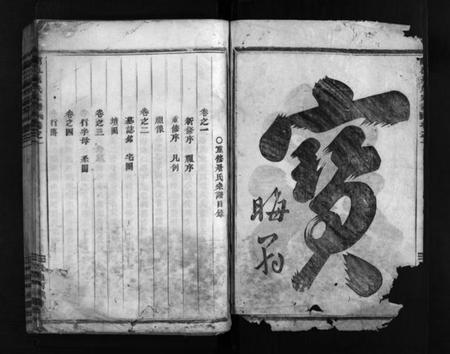 寶
晦翁
○重修屠氏宗譜目錄
卷之一
新修序 舊序
重修序 凡例
遺像
卷之二
墓誌銘 宅圖
墳圖
卷之三
行字母 系圖
卷之四
行傳